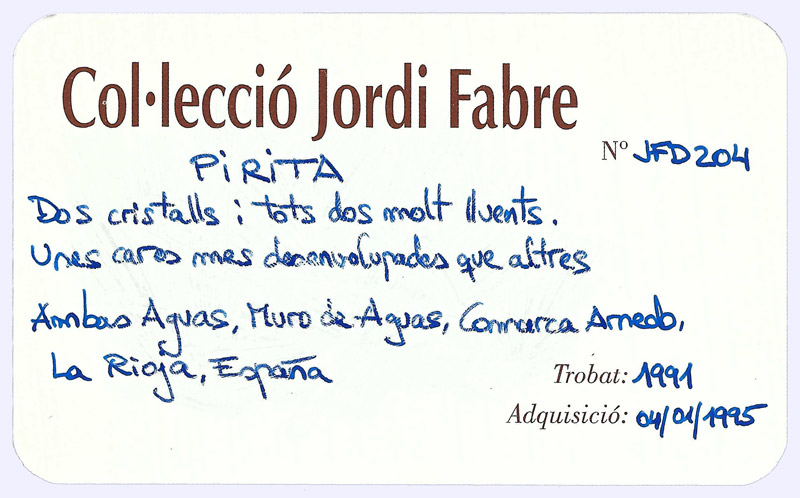 Col·lecció Jordi Fabre
Nº JFD204
PiRiTA
Dos cristalls i tots dos molt lluents.
Unes cares mes desenvolupades que altres
Ambas Aguas, Muro de Aguas, Comarca Arnedo,
La Rioja, España
Trobat: 1991
Adquisició: 04/01/1995